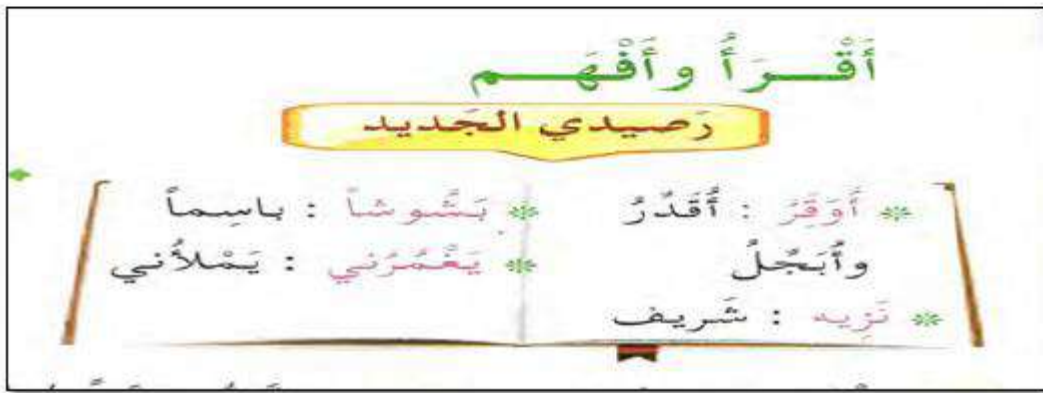 أَقْـــرَأُ وأَفْهَـــم
رَصيدي الجَديد
* أُوَقِّرُ : أُقَدِّرُ
وأُبَجِّلُ
* نَزيه : شَريف
* بَشُّوشاً : باسِماً
* يَغْمُرُني : يَمْلأُني